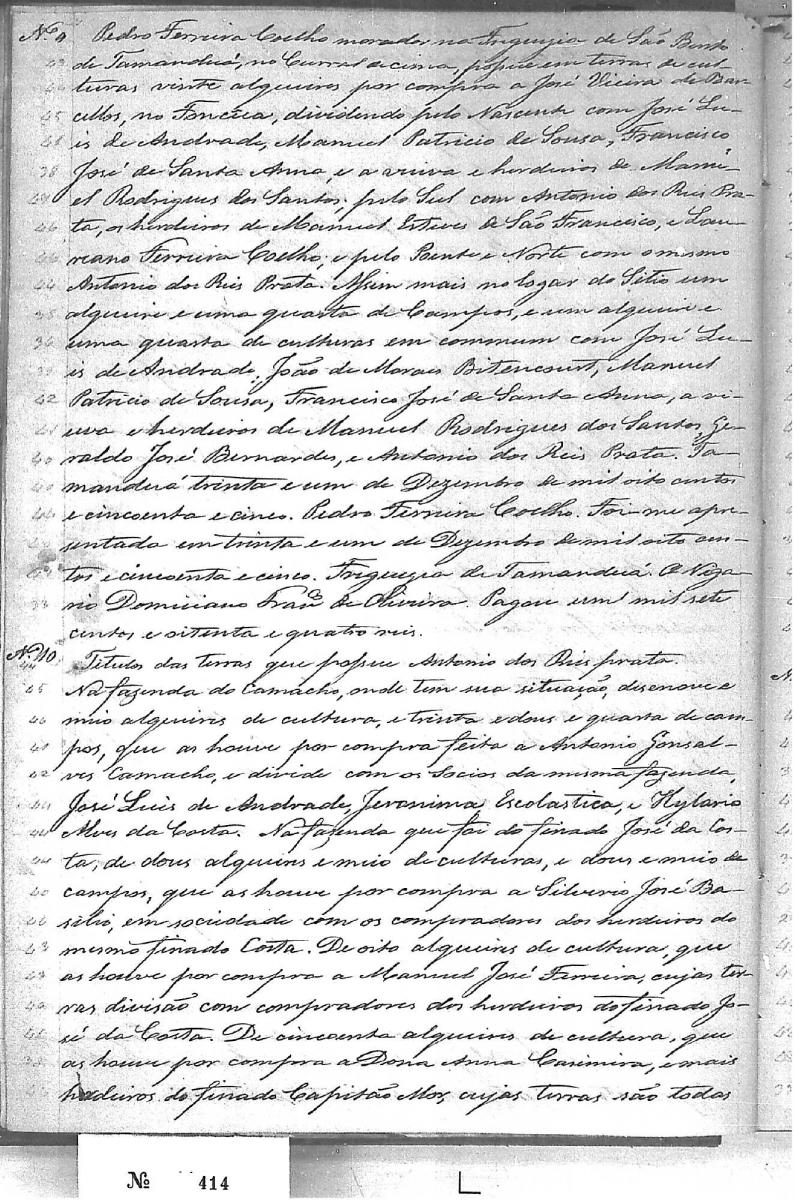 Nº 9 Pedro Ferreira Coelho morador na Freguezia de São Bento
de Tamanduá, no Curral de cima, possue em terras de cul-
turas vinte alqueires por compra a José Vieira de Bar-
cellos, no dividendo pelo Nascente com José Lu-
is de Andrade, Manuel Patricio de Sousa, Francisco
José de Santa Anna, e a viuva e herdeiros de Manu-
el Rodrigues dos Santos; pelo Sul com Antonio dos Reis Pra-
ta, os herdeiros de Manuel Esteves de São Francisco, e Lau-
reano Ferreira Coelho, e pelo Poente e Norte com o mesmo
Antonio dos Reis Prata. Assim mais no logar do Sitio um
alqueire e uma quarta de Campos, e um alqueire e
uma quarta de culturas em commum com José Lu-
is de Andrade, João de Morais Bitencourt, Manuel
Patricio de Sousa, Francisco José de Santa Anna, a vi-
uva e herdeiros de Manuel Rodrigues dos Santos, Ge-
raldo José Bernardes, e Antonio dos Reis Prata. Ta-
manduá trinta e um de Dezembro de mil oito centos
e cincoenta e cinco. Pedro Ferreira Coelho. Foi-me apre-
sentada em trinta e um de Dezembro de mil oito cen-
tos e cincoenta e cinco. Freguezia de Tamanduá. O Viga-
rio Domiciano Franco de Oliveira. Pagou um mil sete
centos e oitenta e quatro reis.
Nº 10 Titulos das terras que possue Antonio dos Reis prata.
Na fazenda do Camacho, onde tem sua situação, desenove e
meio alqueires de cultura, e trinta e dous e quarta de cam-
pos, que as houve por compra feita a Antonio Gonsal-
ves Camacho, e divide com os Socios da mesma fazenda,
José Luis de Andrade, Jeronima Escolastica, e Hylario
Alves da Costa. Na fazenda que foi do finado José da Cos-
ta, de dous alqueires e meio de culturas, e dous e meio de
campos, que as houve por compra a Silverio José Ba-
silio, em sociedade com os compradores dos herdeiros do
mesmo finado Costa. De oito alqueires de cultura, que
as houve por compra a Manuel José Ferreira, cujas ter-
ras divisão com compradores dos herdeiros do finado Jo-
sé da Costa. De cincoenta alqueires de cultura, que
as houve por compra a Dona Anna Casimira, e mais
herdeiros do finado Capitão Mor, cujas terras são todas
Nº 414